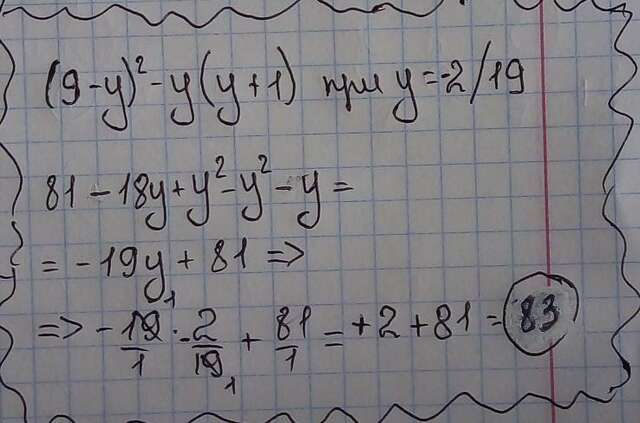 (9-y)² - y(y+1) при y=-2/19
81 - 18y + y² - y² - y =
= - 19y + 81 =>
=> - 19/1 · -2/19 + 81/1 = +2 + 81 = 83